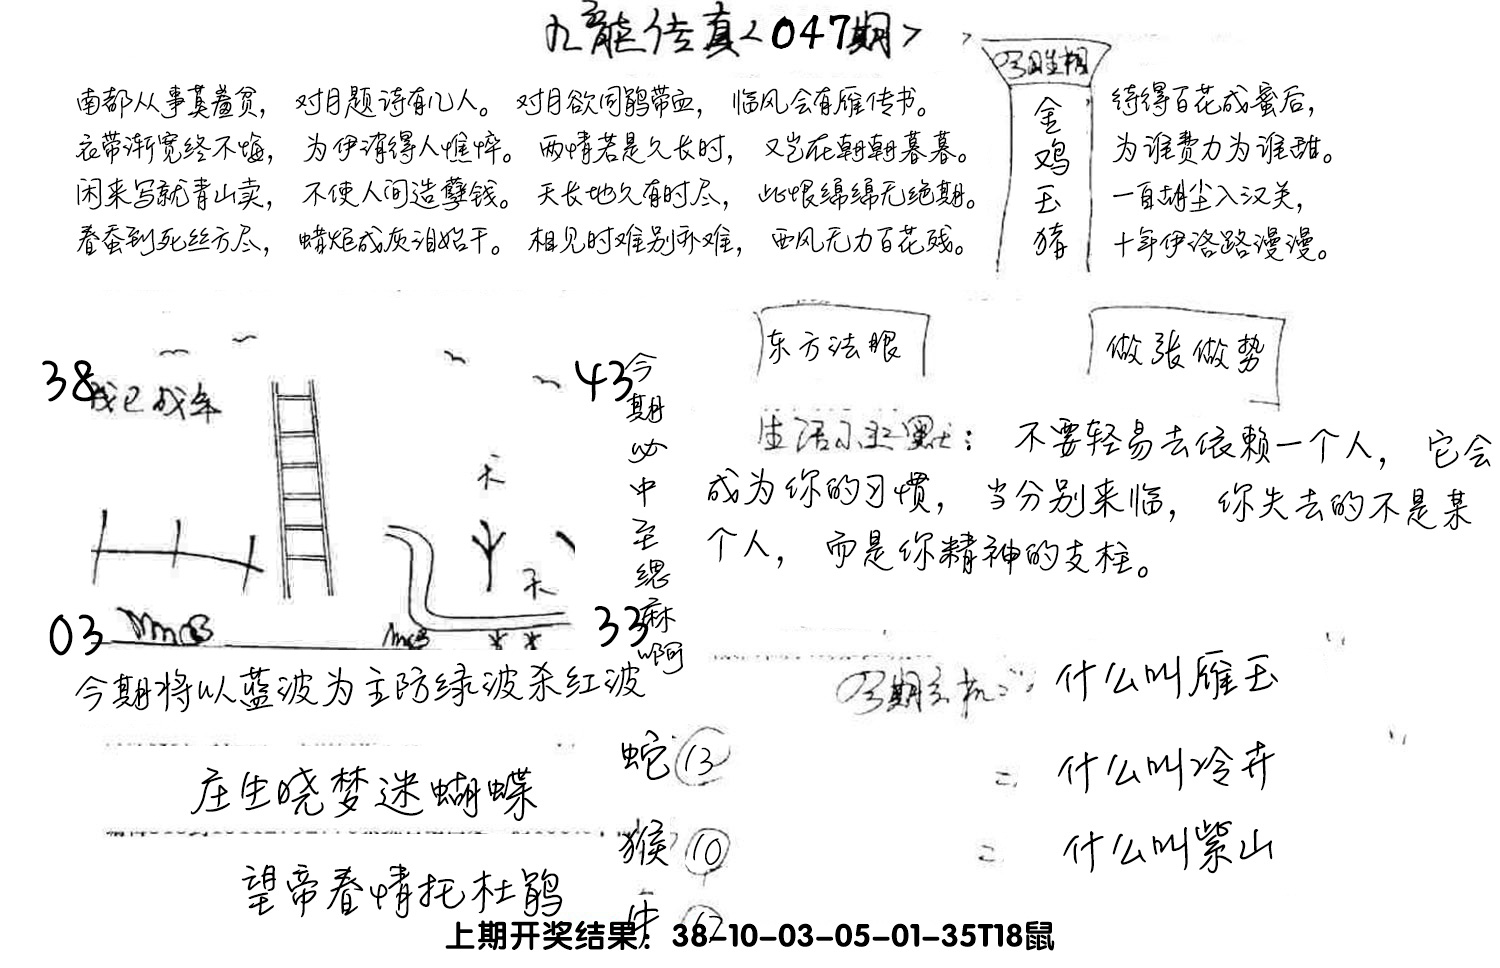 九龍传真<047期>
南都从事莫羞贫，对月题诗有几人。对月欲同鹃带血，临风会有雁传书。
衣带渐宽终不悔，为伊消得人憔悴。两情若是久长时，又岂在朝朝暮暮。
闲来写就青山卖，不使人间造孽钱。天长地久有时尽，此恨绵绵无绝期。
春蚕到死丝方尽，蜡炬成灰泪始干。相见时难别亦难，西风无力百花残。
金鸡玉猪
待得百花成蜜后，
为谁费力为谁甜。
一自胡尘入汉关，
十年伊洛路漫漫。
东方法眼
做张做势
38
43
03
33
天
天
今期必中至缌麻啊
生活小幽默：不要轻易去依赖一个人，它会
成为你的习惯，当分别来临，你失去的不是某
个人，而是你精神的支柱。
今期将以蓝波为主防绿波杀红波
庄生晓梦迷蝴蝶
望帝春情托杜鹃
蛇 13
猴 10
牛 12
今期玄机：什么叫雁玉
什么叫冷卉
什么叫紫山
上期开奖结果：38-10-03-05-01-35T18鼠